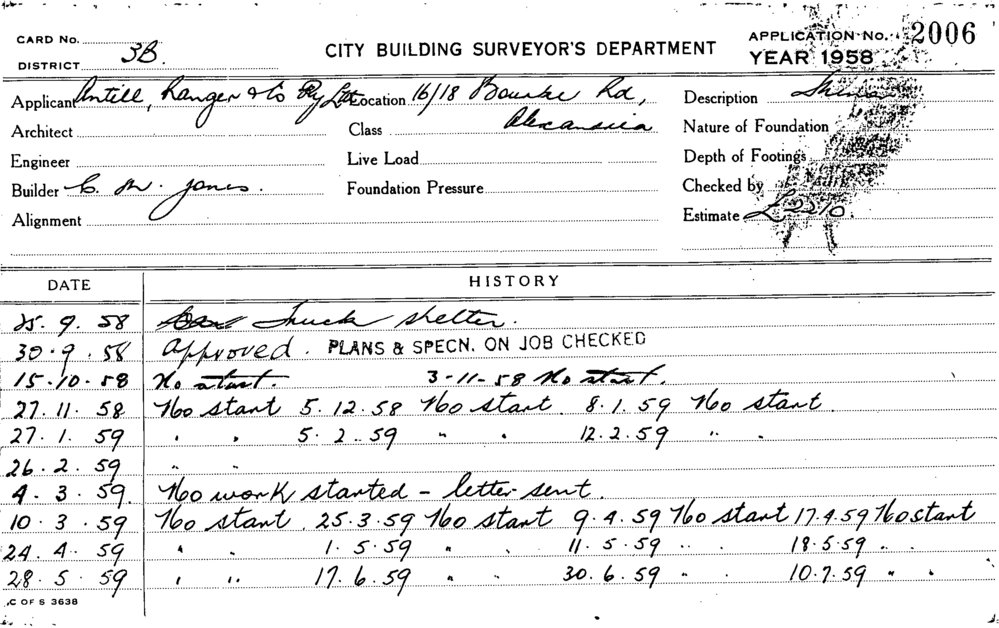 CARD No.
DISTRICT 3B.
CITY BUILDING SURVEYOR'S DEPARTMENT
APPLICATION No. 2006
YEAR 1958
Applicant Antill, Ranger & Co Pty Ltd Location 16/18 Bourke Rd, Description
Architect Class Alexandria Nature of Foundation
Engineer Live Load Depth of Footings
Builder C. M. Jones. Foundation Pressure Checked by
Alignment Estimate
DATE HISTORY
25. 9. 58 Truck shelter.
30. 9. 58 Approved. PLANS & SPECN. ON JOB CHECKED
15. 10. 58 No start. 3-11-58 No start.
27. 11. 58 No start 5. 12. 58 No start. 8. 1. 59 No start.
27. 1. 59 " " 5. 2. 59 " " 12. 2. 59 " "
26. 2. 59 " "
4. 3. 59. No work started - letter sent.
10. 3. 59 No start. 25. 3. 59 No start 9. 4. 59 No start 17.4.59 No start
24. 4. 59 " " 1. 5. 59 " " 11. 5. 59 " " 18.5.59 " "
28. 5. 59 " " 17. 6. 59 " " 30. 6. 59 " " 10.7.59 " "
C OF S 3638